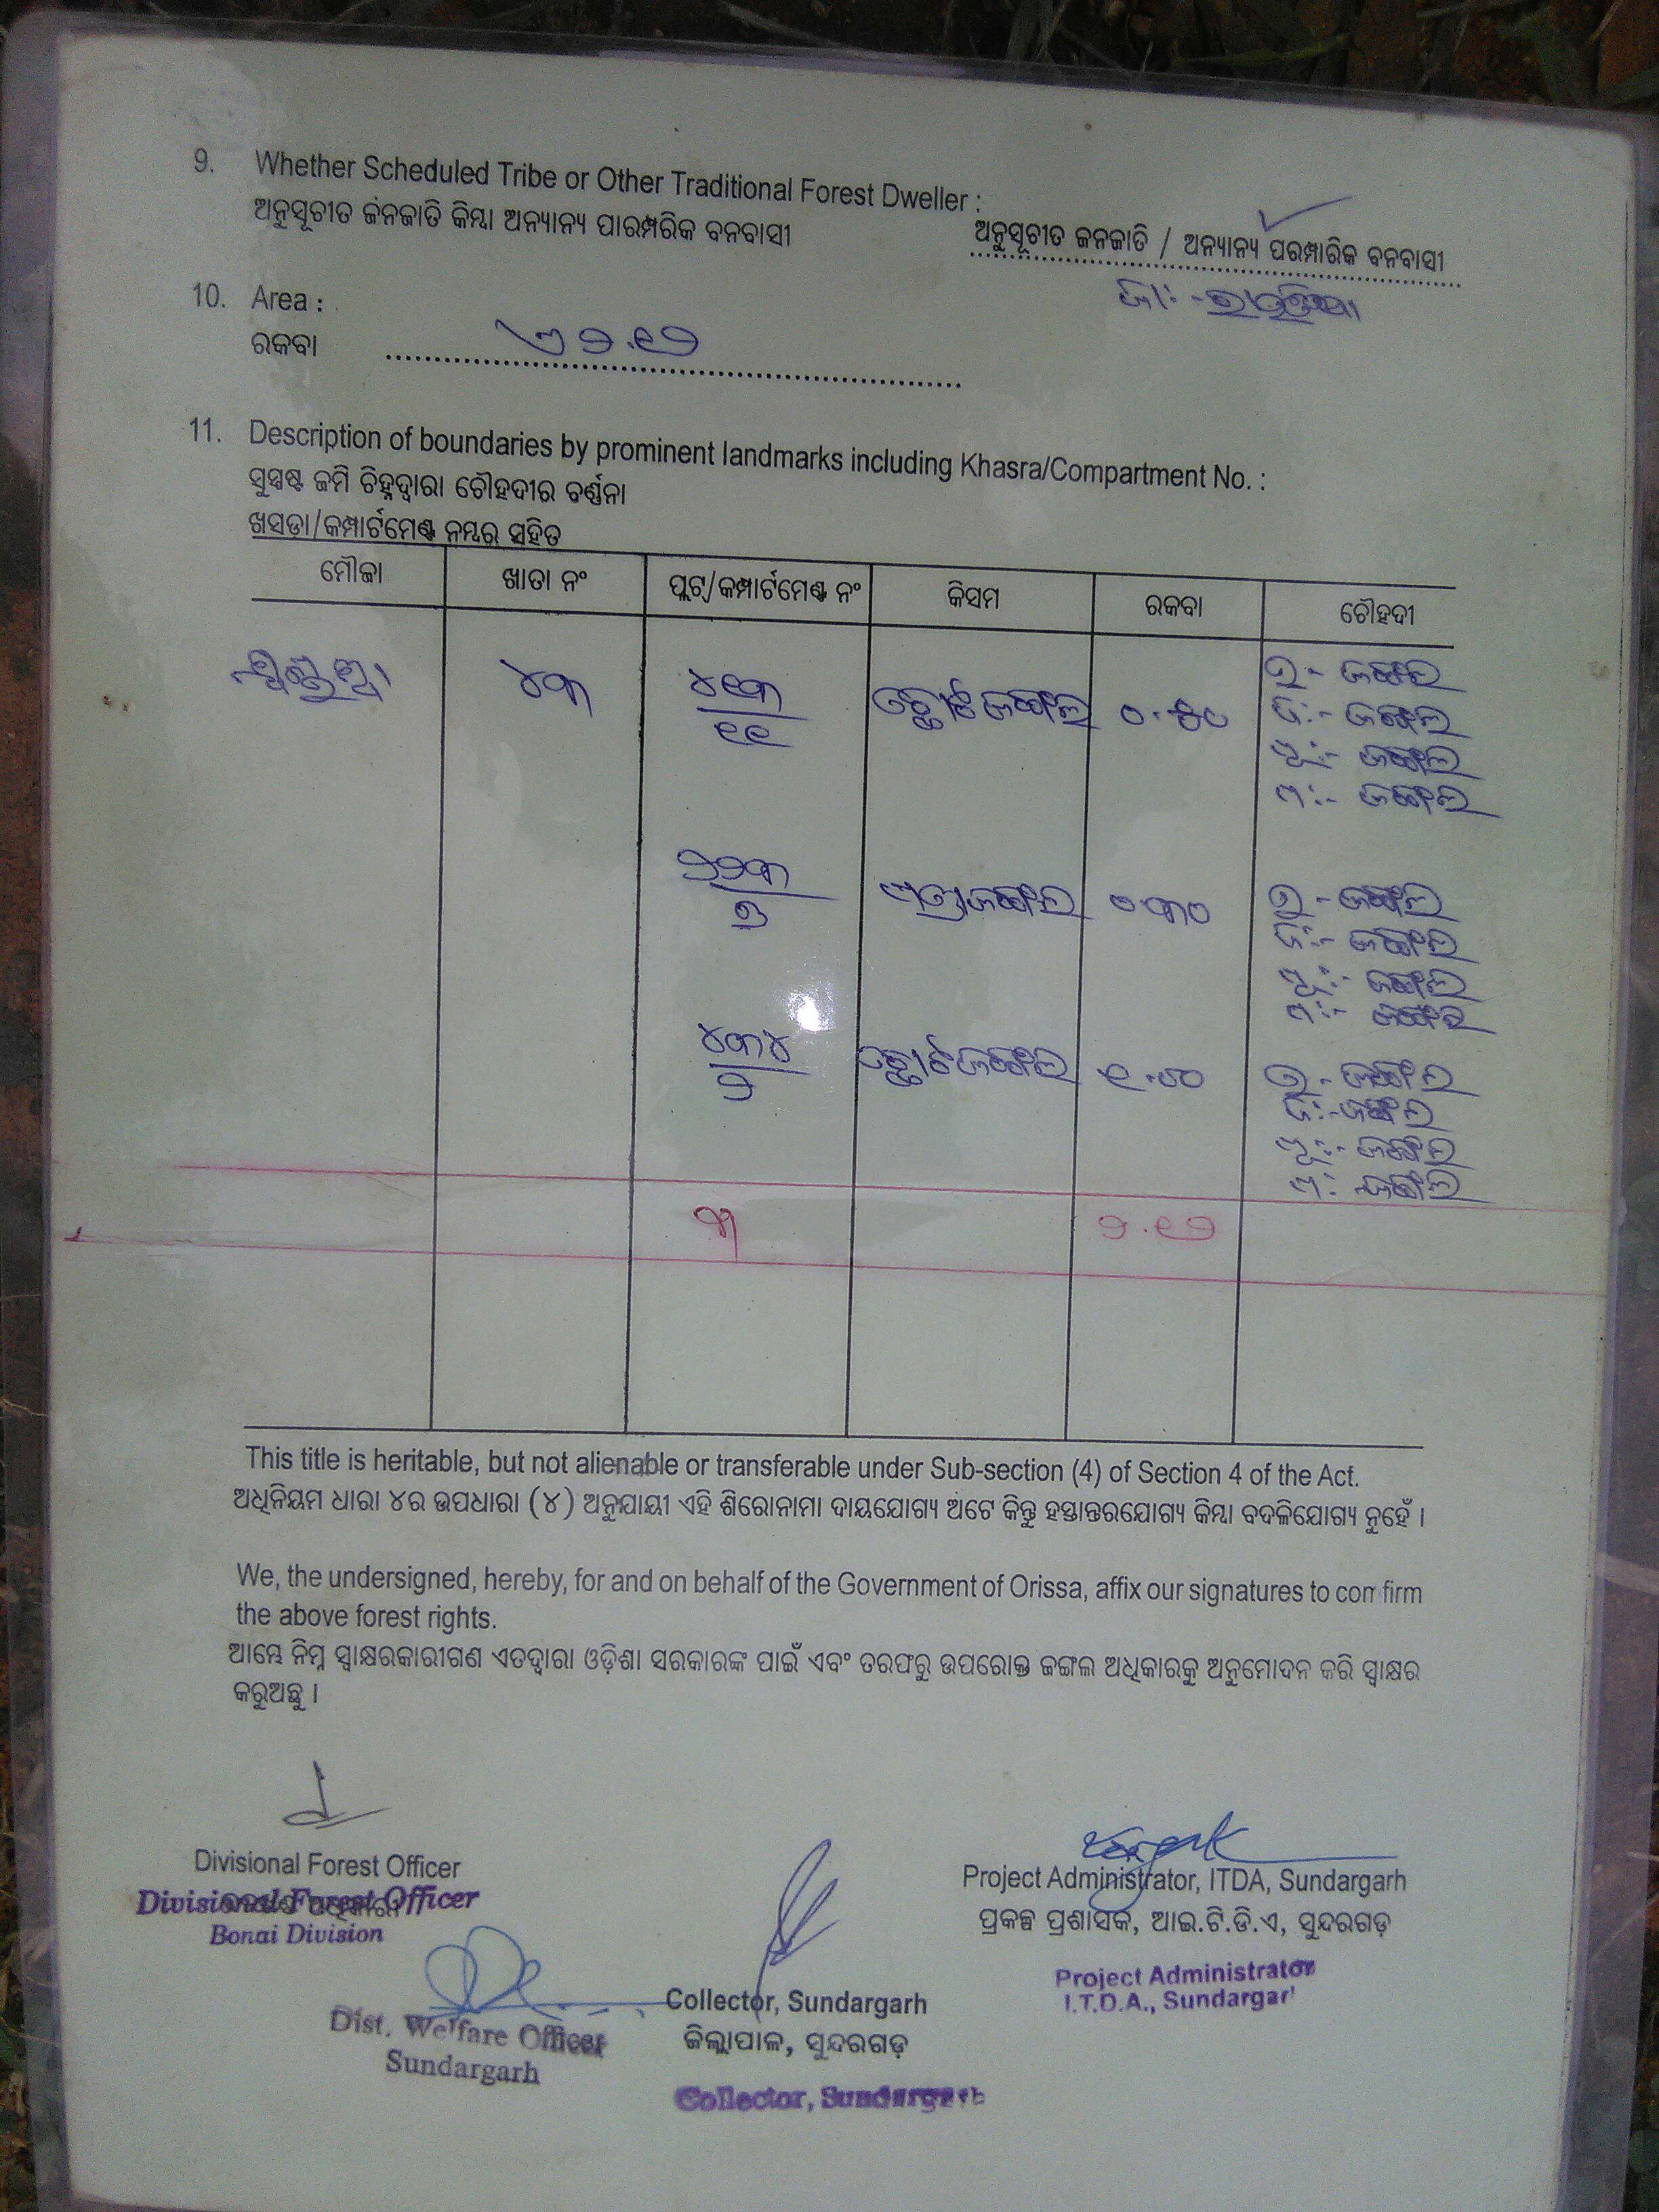 9. Whether Scheduled Tribe or Other Traditional Forest Dweller :
ଅନୁସୂଚୀତ ଜନଜାତି କିମ୍ବା ଅନ୍ୟାନ୍ୟ ପାରମ୍ପରିକ ବନବାସୀ
ଅନୁସୂଚୀତ ଜନଜାତି / ଅନ୍ୟାନ୍ୟ ପରମ୍ପାରିକ ବନବାସୀ
10. Area :
ରକବା
11. Description of boundaries by prominent landmarks including Khasra/Compartment No. :
ସୁସ୍ପଷ୍ଟ ଜମି ଚିହ୍ନଦ୍ୱାରା ଚୌହଦୀର ବର୍ଣ୍ଣନା
ଖସଡ଼ା/କମ୍ପାର୍ଟମେଣ୍ଟ ନମ୍ବର ସହିତ
ମୌଜା ଖାତା ନଂ ପ୍ଲଟ୍/କମ୍ପାର୍ଟମେଣ୍ଟ ନଂ କିସମ ରକବା ଚୌହଦୀ
୪୩ ୪୧୩/୧୧ ଛୋଟଜଙ୍ଗଲ ଉ - ଜଙ୍ଗଲ
ଦଃ- ଜଙ୍ଗଲ
ପୂଃ- ଜଙ୍ଗଲ
ପଃ- ଜଙ୍ଗଲ
ଜଙ୍ଗଲ ୦.୩୦ ଉ - ଜଙ୍ଗଲ
ଦଃ- ଜଙ୍ଗଲ
ପୂଃ- ଜଙ୍ଗଲ
ପଃ- ଜଙ୍ଗଲ
୪୩୪/୨ ଛୋଟଜଙ୍ଗଲ ଉ - ଜଙ୍ଗଲ
ଦଃ- ଜଙ୍ଗଲ
ପୂଃ- ଜଙ୍ଗଲ
ପଃ ଜଙ୍ଗଲ
୩ ୨.୧୨
This title is heritable, but not alienable or transferable under Sub-section (4) of Section 4 of the Act.
ଅଧିନିୟମ ଧାରା ୪ର ଉପଧାରା (୪) ଅନୁଯାୟୀ ଏହି ଶିରୋନାମା ଦାୟଯୋଗ୍ୟ ଅଟେ କିନ୍ତୁ ହସ୍ତାନ୍ତରଯୋଗ୍ୟ କିମ୍ବା ବଦଳିଯୋଗ୍ୟ ନୁହେଁ ।
We, the undersigned, hereby, for and on behalf of the Government of Orissa, affix our signatures to confirm
the above forest rights.
ଆମ୍ଭେ ନିମ୍ନ ସ୍ୱାକ୍ଷରକାରୀଗଣ ଏତଦ୍ୱାରା ଓଡ଼ିଶା ସରକାରଙ୍କ ପାଇଁ ଏବଂ ତରଫରୁ ଉପରୋକ୍ତ ଜଙ୍ଗଲ ଅଧିକାରକୁ ଅନୁମୋଦନ କରି ସ୍ୱାକ୍ଷର
କରୁଅଛୁ ।
Divisional Forest Officer
Divisional Forest Officer
Bonai Division
Project Administrator, ITDA, Sundargarh
ପ୍ରକଳ୍ପ ପ୍ରଶାସକ, ଆଇ.ଟି.ଡି.ଏ, ସୁନ୍ଦରଗଡ଼
Project Administrator
I.T.D.A., Sundargar
Dist. Welfare Officer
Sundargarh
Collector, Sundargarh
ଜିଲ୍ଲାପାଳ, ସୁନ୍ଦରଗଡ଼
Collector, Sundargarh